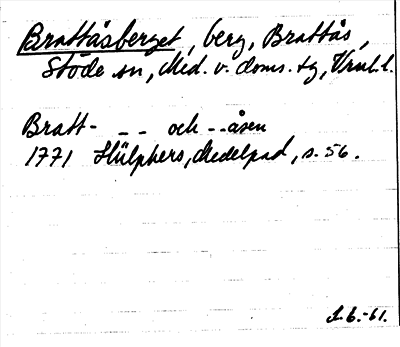 Brattåsberget, berg, Brattås,
Stöde sn, Med. v. doms. tg, Vrnl. l.
Bratt- - - och - -åsen
1771 Hülphers, Medelpad, s. 56.
S. B. -61.